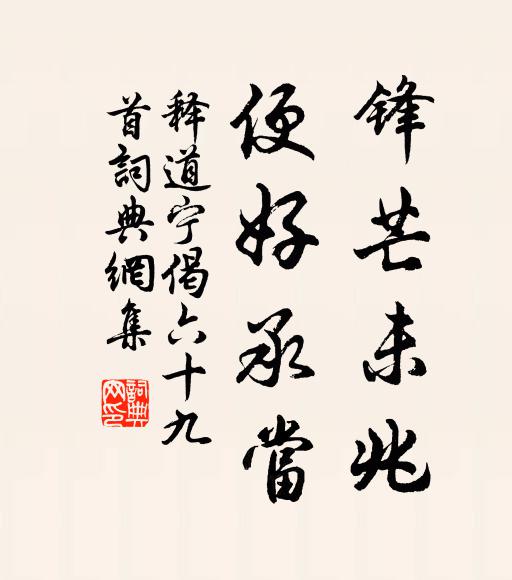 锋芒未兆
便好承當
释道宁偈六十九
首詞典網集
詞典網印